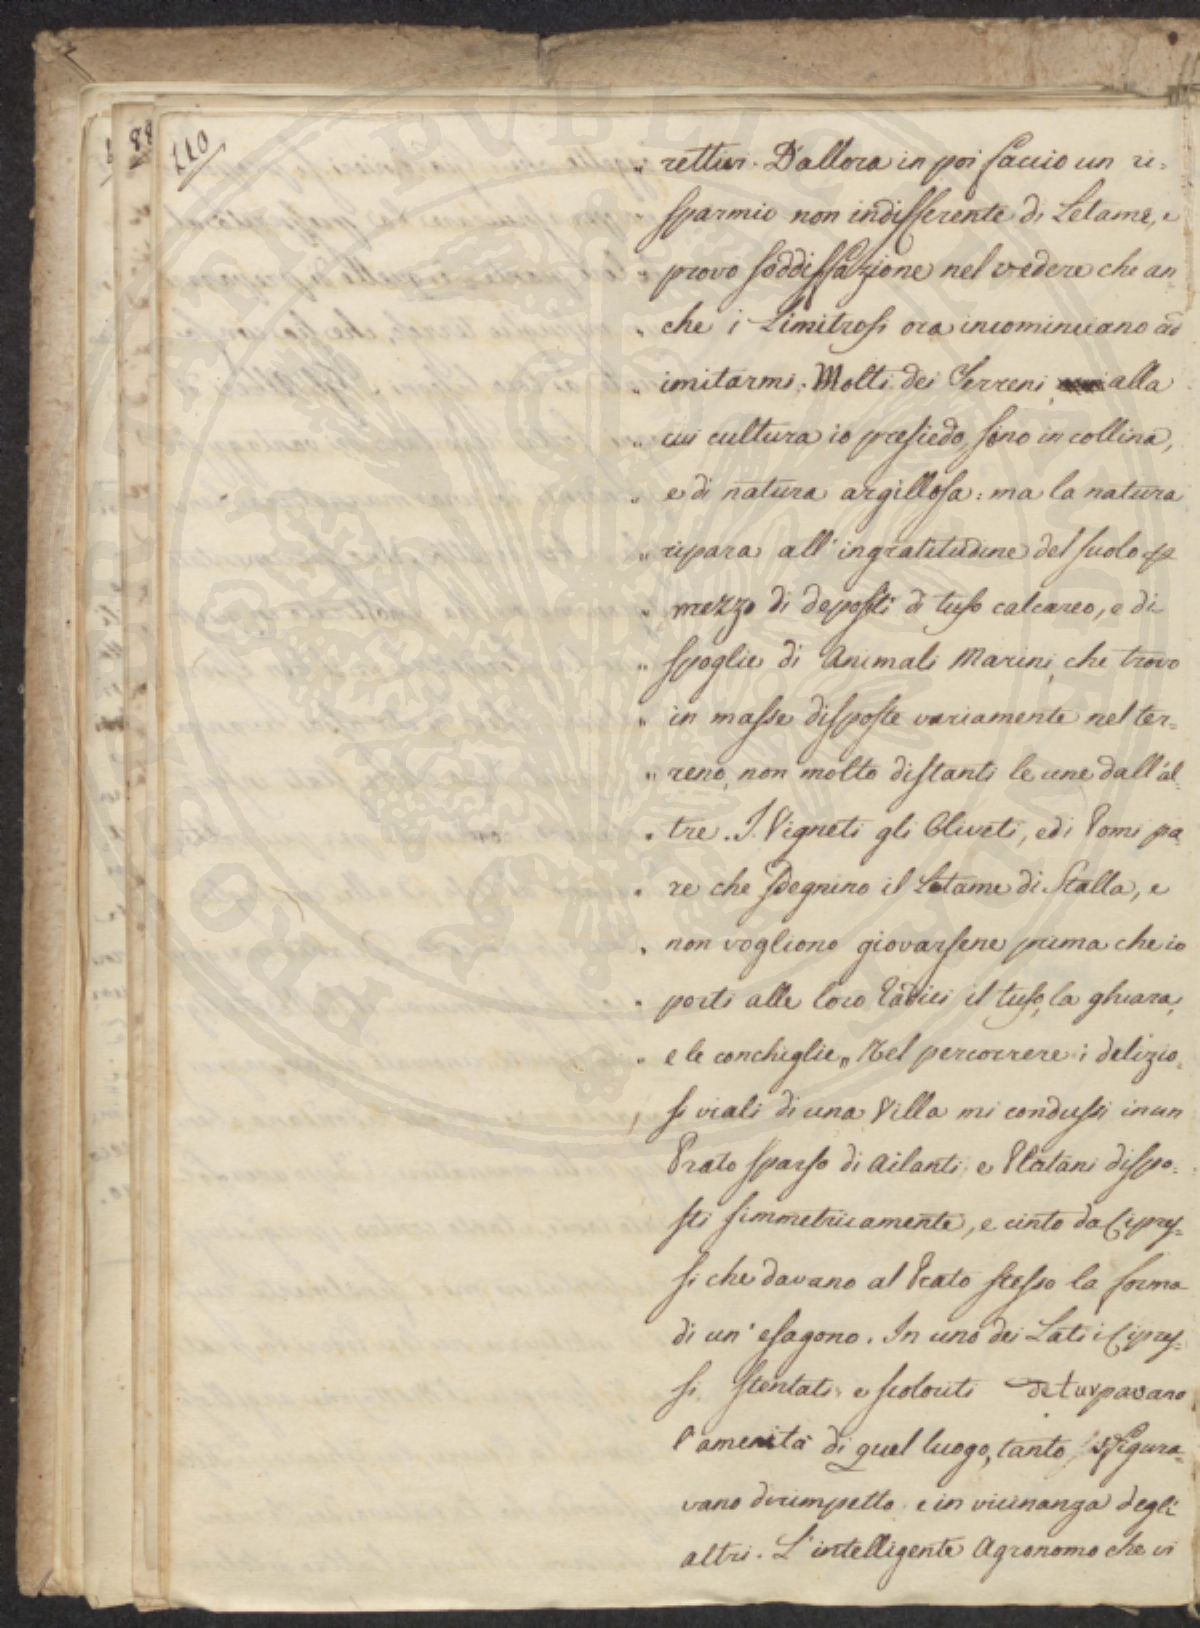 110
88
" rettivi. D'allora in poi faccio un ri=
sparmio non indifferente di Letame, e
provo soddisfazione nel vedere che an
" che i Limitrofi ora incominciano ad
" imitarmi. Molti dei Terreni, alla
" cui cultura io presiedo, sono in collina,
" e di natura argillosa: ma la natura
" ripara all'ingratitudine del suolo p
" mezzo di depositi di tufo calcareo, e di
" spoglie di Animali Marini, che trovo
" in masse disposte variamente nel ter=
" reno, non molto distanti le une dall'al
" tre. I Vigneti gli Oliveti, ed i Pomi pa
" re che sdegnino il Letame di Stalla, e
" non vogliono giovarsene prima che io
" porti alle loro Radici il tufo, la ghiara,
" e le conchiglie„ Nel percorrere i delizio=
si viali di una Villa mi condussi in un
Prato sparso di Ailanti e Platani dispo=
sti simmetricamente, e cinto da Cipres=
si che davano al Prato stesso la forma
di un' esagono. In uno dei Lati i Cipres=
si stentati e scoloriti deturpavano
l'amenità di quel luogo, tanto sfigura=
vano dirimpetto e in vicinanza degli
altri. L'intelligente Agronomo che vi
PUBLIC